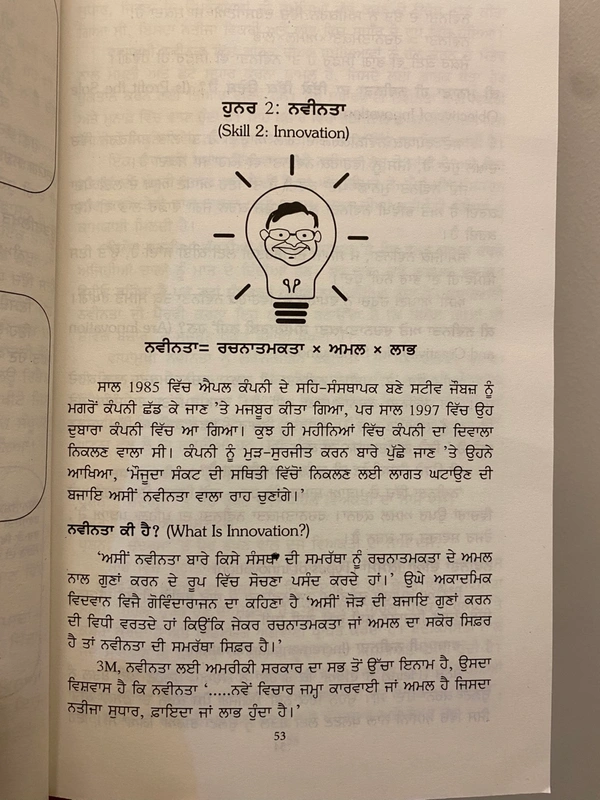 ਹੁਨਰ 2: ਨਵੀਨਤਾ
(Skill 2: Innovation)
ਨਵੀਨਤਾ= ਰਚਨਾਤਮਕਤਾ × ਅਮਲ × ਲਾਭ
ਸਾਲ 1985 ਵਿੱਚ ਐਪਲ ਕੰਪਨੀ ਦੇ ਸਹਿ-ਸੰਸਥਾਪਕ ਬਣੇ ਸਟੀਵ ਜੌਬਜ਼ ਨੂੰ
ਮਗਰੋਂ ਕੰਪਨੀ ਛੱਡ ਕੇ ਜਾਣ 'ਤੇ ਮਜਬੂਰ ਕੀਤਾ ਗਿਆ, ਪਰ ਸਾਲ 1997 ਵਿੱਚ ਉਹ
ਦੁਬਾਰਾ ਕੰਪਨੀ ਵਿੱਚ ਆ ਗਿਆ। ਕੁਝ ਹੀ ਮਹੀਨਿਆਂ ਵਿੱਚ ਕੰਪਨੀ ਦਾ ਦਿਵਾਲਾ
ਨਿਕਲਣ ਵਾਲਾ ਸੀ। ਕੰਪਨੀ ਨੂੰ ਮੁੜ-ਸੁਰਜੀਤ ਕਰਨ ਬਾਰੇ ਪੁੱਛੇ ਜਾਣ 'ਤੇ ਉਹਨੇ
ਆਖਿਆ, 'ਮੌਜੂਦਾ ਸੰਕਟ ਦੀ ਸਥਿਤੀ ਵਿੱਚੋਂ ਨਿਕਲਣ ਲਈ ਲਾਗਤ ਘਟਾਉਣ ਦੀ
ਬਜਾਇ ਅਸੀਂ ਨਵੀਨਤਾ ਵਾਲਾ ਰਾਹ ਚੁਣਾਂਗੇ।'
ਨਵੀਨਤਾ ਕੀ ਹੈ? (What Is Innovation?)
'ਅਸੀਂ ਨਵੀਨਤਾ ਬਾਰੇ ਕਿਸੇ ਸੰਸਥਾ ਦੀ ਸਮਰੱਥਾ ਨੂੰ ਰਚਨਾਤਮਕਤਾ ਦੇ ਅਮਲ
ਨਾਲ ਗੁਣਾਂ ਕਰਨ ਦੇ ਰੂਪ ਵਿੱਚ ਸੋਚਣਾ ਪਸੰਦ ਕਰਦੇ ਹਾਂ।' ਉਘੇ ਅਕਾਦਮਿਕ
ਵਿਦਵਾਨ ਵਿਜੈ ਗੋਵਿੰਦਾਰਾਜਨ ਦਾ ਕਹਿਣਾ ਹੈ 'ਅਸੀਂ ਜੋੜ ਦੀ ਬਜਾਇ ਗੁਣਾਂ ਕਰਨ
ਦੀ ਵਿਧੀ ਵਰਤਦੇ ਹਾਂ ਕਿਉਂਕਿ ਜੇਕਰ ਰਚਨਾਤਮਕਤਾ ਜਾਂ ਅਮਲ ਦਾ ਸਕੋਰ ਸਿਫ਼ਰ
ਹੈ ਤਾਂ ਨਵੀਨਤਾ ਦੀ ਸਮਰੱਥਾ ਸਿਫ਼ਰ ਹੈ।'
3M, ਨਵੀਨਤਾ ਲਈ ਅਮਰੀਕੀ ਸਰਕਾਰ ਦਾ ਸਭ ਤੋਂ ਉੱਚਾ ਇਨਾਮ ਹੈ, ਉਸਦਾ
ਵਿਸ਼ਵਾਸ ਹੈ ਕਿ ਨਵੀਨਤਾ '.....ਨਵੇਂ ਵਿਚਾਰ ਜਮ੍ਹਾ ਕਾਰਵਾਈ ਜਾਂ ਅਮਲ ਹੈ ਜਿਸਦਾ
ਨਤੀਜਾ ਸੁਧਾਰ, ਫ਼ਾਇਦਾ ਜਾਂ ਲਾਭ ਹੁੰਦਾ ਹੈ।'
53